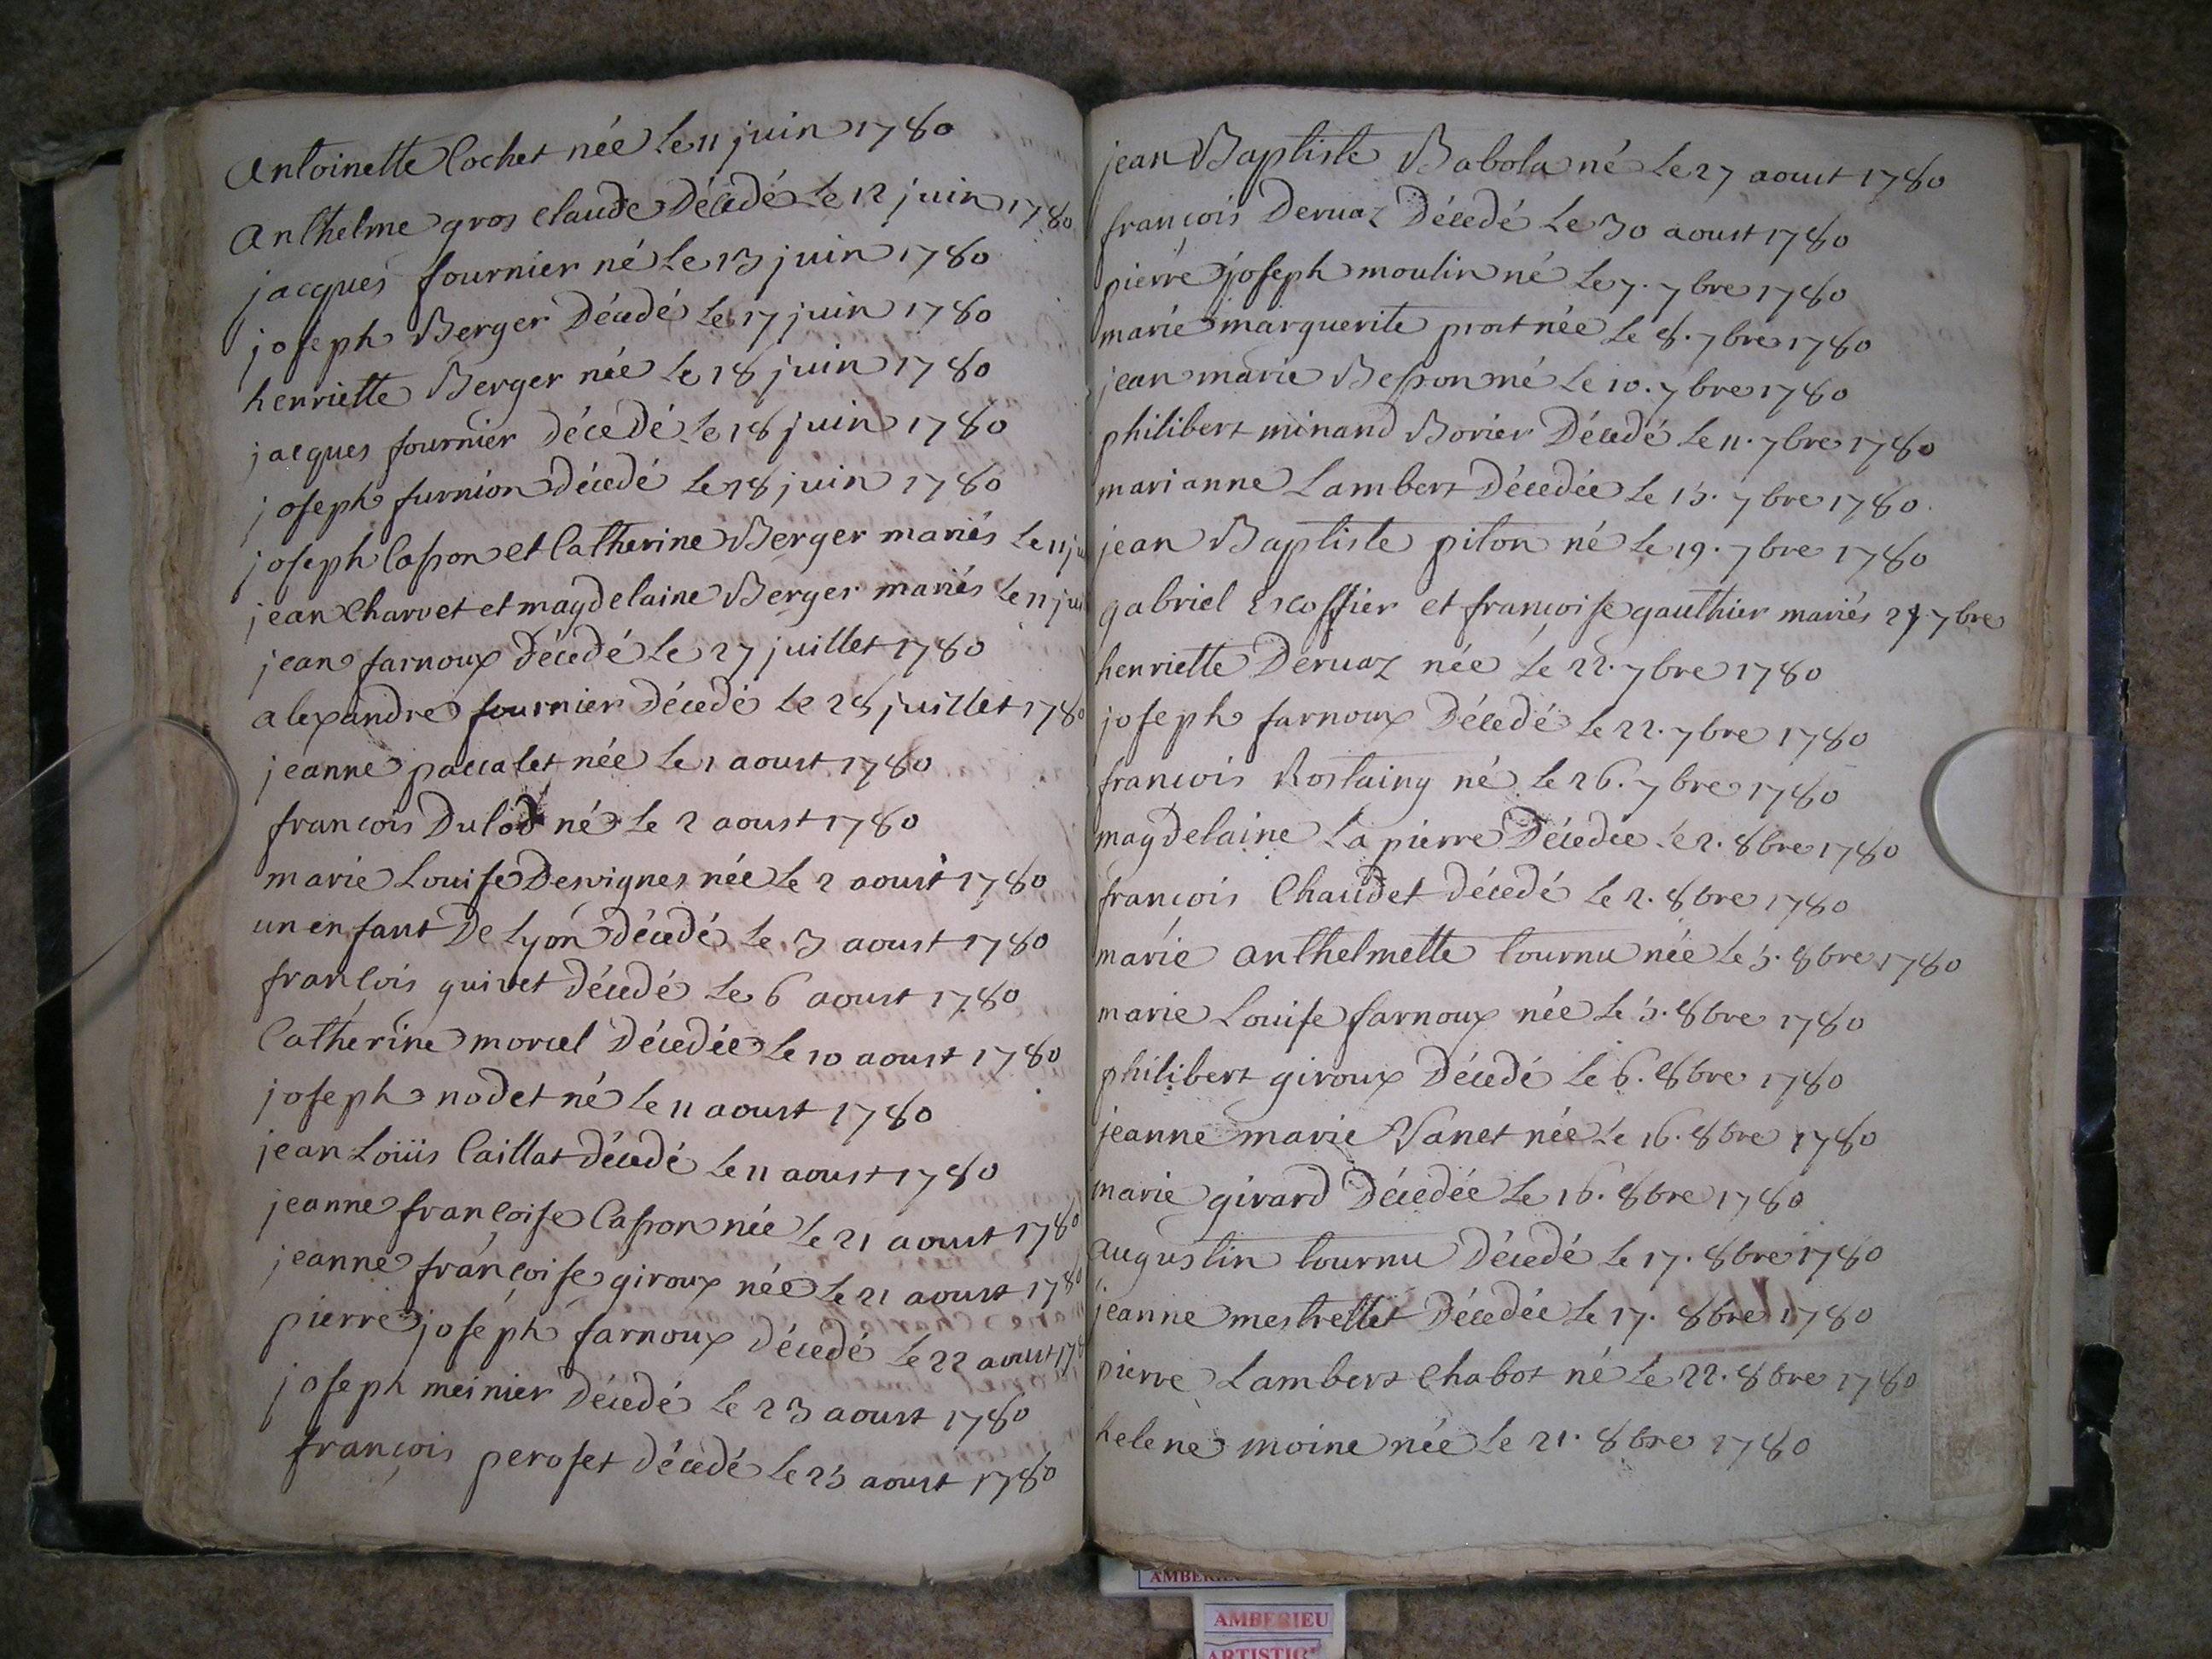 Antoinette Cochet née Le 11 juin 1780
Anthelme gros claude Décedé Le 12 juin 1780
jacques fournier né Le 13 juin 1780
joseph Berger Décedé Le 17 juin 1780
henriette Berger née Le 18 juin 1780
jacques fournier Décedé Le 18 juin 1780
joseph furnion décedé Le 18 juin 1780
joseph Casson et Catherine Berger mariés Le 11 ju
jean Charvet et magdelaine Berger mariés Le 11 jui
jean farnoux décedé Le 27 juillet 1780
alexandre fournier Décedé Le 28 juillet 1780
jeanne paccalet née Le 1 aoust 1780
françois Dulod né Le 2 aoust 1780
marie Louise Desvignes née Le 2 aoust 1780
un enfant De Lyon décedé Le 3 aoust 1780
françois quivet décedé Le 6 aoust 1780
Catherine morcel Décedée Le 10 aoust 1780
joseph nodet né Le 11 aoust 1780
jean Loüis Caillat décedé Le 11 aoust 1780
jeanne françoise Casson née Le 21 aoust 1780
jeanne françoise giroux née Le 21 aoust 1780
pierre joseph farnoux décedé Le 22 aoust 178
joseph meinier Décedé Le 23 aoust 1780
françois peroset décedé Le 25 aoust 1780
jean Baptiste Babola né Le 27 aoust 1780
françois Dervaz Décedé Le 30 aoust 1780
pierre joseph moulin né Le 7. 7bre 1780
marie marguerite prost née Le 8. 7bre 1780
jean marie Besson né Le 10. 7bre 1780
philibert minand Borier Décedé Le 11. 7bre 1780
marianne Lambert Décedée Le 15. 7bre 1780
jean Baptiste piton né Le 19. 7bre 1780
gabriel Escoffier et françoise gauthier mariés 7bre
henriette Dervaz née Le 22. 7bre 1780
joseph farnoux Décedé Le 22. 7bre 1780
françois Rostaing né Le 26. 7bre 1780
magdelaine La pierre Décedée Le 2. 8bre 1780
françois Chaudet décedé Le 2. 8bre 1780
marie anthelmette tournu née Le 5. 8bre 1780
marie Louise farnoux née Le 5. 8bre 1780
philibert giroux Décedé Le 6. 8bre 1780
jeanne marie Vanet née Le 16. 8bre 1780
marie girard Décedée Le 16. 8bre 1780
augustin tournu Décedé Le 17. 8bre 1780
jeanne mestrellet Décedée Le 17. 8bre 1780
pierre Lambert Chabot né Le 22. 8bre 1780
helene moine née Le 21. 8bre 1780
AMBERIEU
AMBERIEU
ARTISTIQ